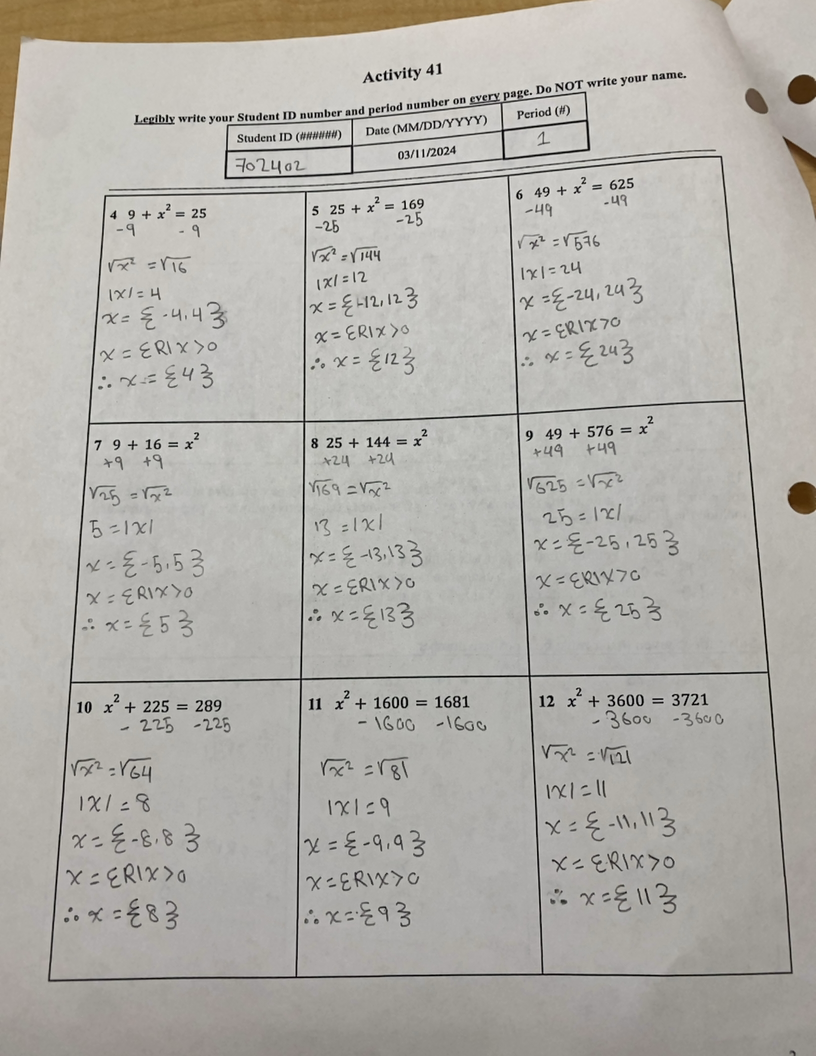 Activity 41
Legibly write your Student ID number and period number on every page. Do NOT write your name.
Student ID (######) Date (MM/DD/YYYY) Period (#)
702402 03/11/2024 1
4 9 + x² = 25
-9 -9
√x² = √16
|x| = 4
x = {-4,4}
x = ƐR|x>0
∴ x = {4}
5 25 + x² = 169
-25 -25
√x² = √144
|x| = 12
x = {-12,12}
x = ƐR|x>0
∴ x = {12}
6 49 + x² = 625
-49 -49
√x² = √576
|x| = 24
x = {-24,24}
x = ƐR|x>0
∴ x = {24}
7 9 + 16 = x²
+9 +9
√25 = √x²
5 = |x|
x = {-5,5}
x = ƐR|x>0
∴ x = {5}
8 25 + 144 = x²
+24 +24
√169 = √x²
13 = |x|
x = {-13,13}
x = ƐR|x>0
∴ x = {13}
9 49 + 576 = x²
+49 +49
√625 = √x²
25 = |x|
x = {-25,25}
x = ƐR|x>0
∴ x = {25}
10 x² + 225 = 289
- 225 -225
√x² = √64
|x| = 8
x = {-8,8}
x = ƐR|x>0
∴ x = {8}
11 x² + 1600 = 1681
- 1600 -1600
√x² = √81
|x| = 9
x = {-9,9}
x = ƐR|x>0
∴ x = {9}
12 x² + 3600 = 3721
- 3600 -3600
√x² = √121
|x| = 11
x = {-11,11}
x = ƐR|x>0
∴ x = {11}